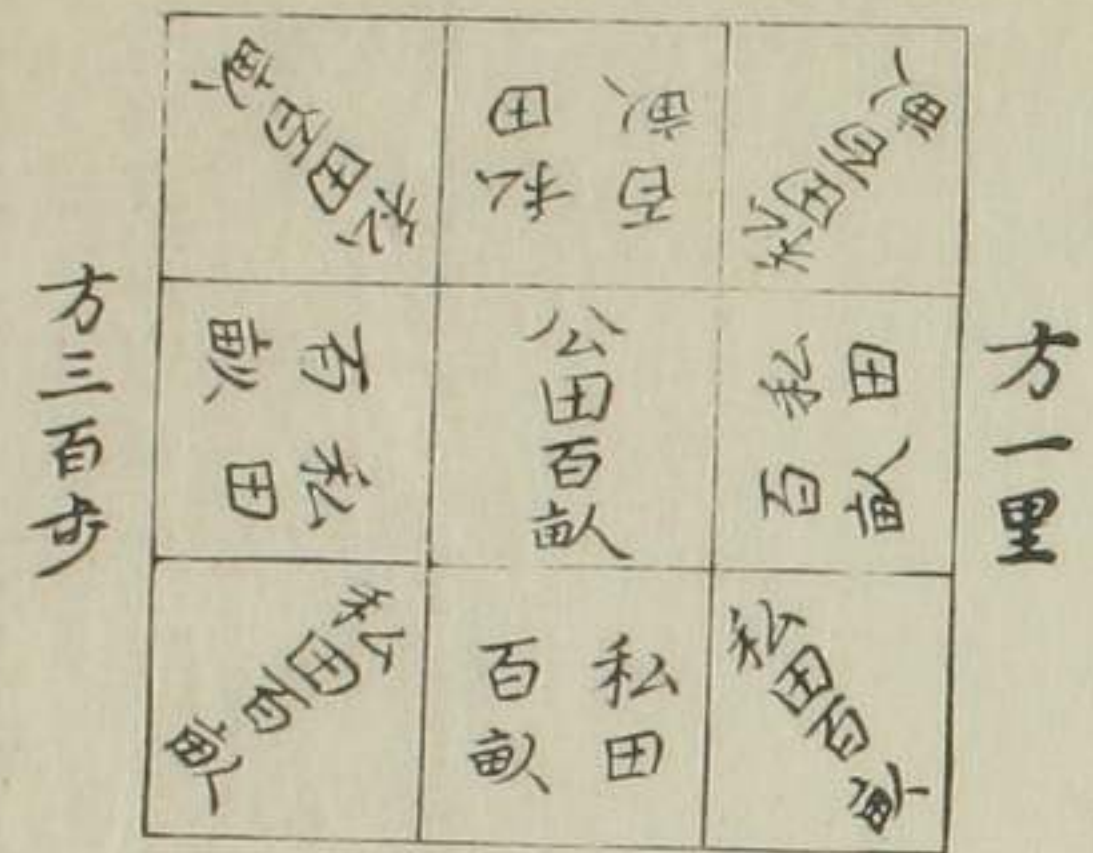 方一里
私田百畝
私田
百畝
私田百畝
私田
百畝
公田百畝
私田
百畝
私田百畝
私田
百畝
私田百畝
方三百步